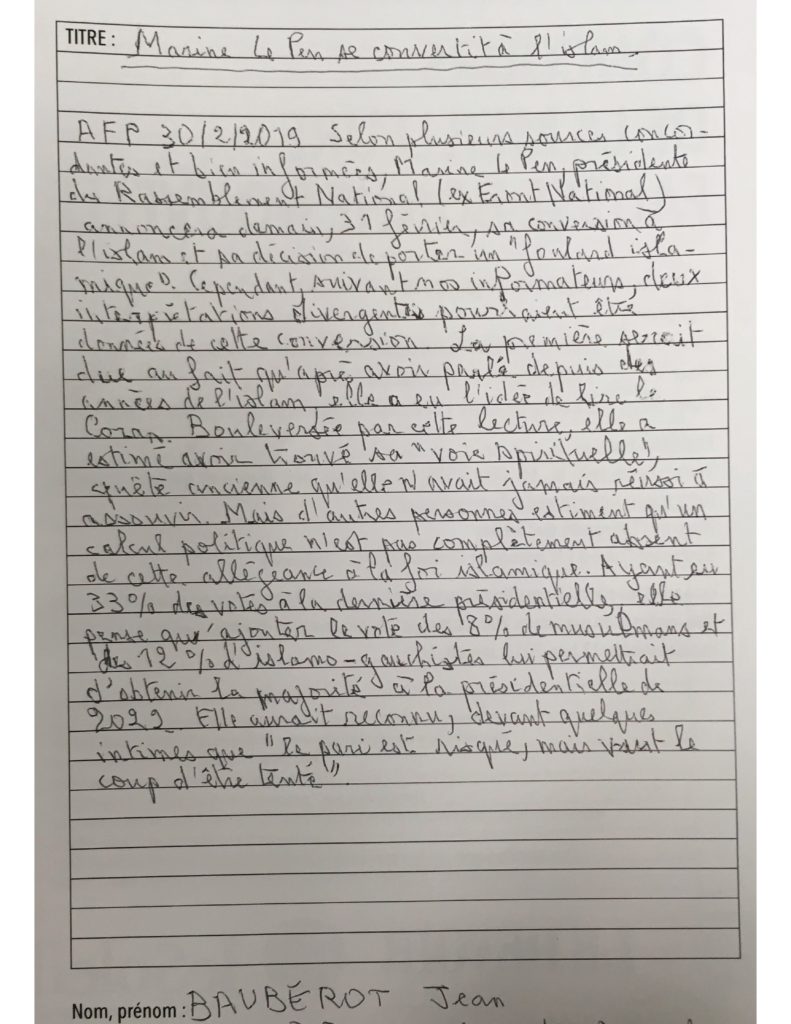 TITRE : Marine Le Pen se convertit à l'islam.
AFP 30/2/2019 Selon plusieurs sources concor-
dantes et bien informées, Marine Le Pen, présidente
du Rassemblement National (ex Front National)
annoncera demain, 31 février, sa conversion à
l'islam et sa décision de porter un "foulard isla-
mique". Cependant, suivant nos informateurs, deux
interprétations divergentes pourraient être
données de cette conversion. La première serait
due au fait qu'aprè avoir parlé depuis des
années de l'islam elle a eu l'idée de lire le
Coran. Bouleversée par cette lecture, elle a
estimé avoir trouvé sa "voie spirituelle",
quête ancienne qu'elle n'avait jamais réussi à
assouvir. Mais d'autres personnes estiment qu'un
calcul politique n'est pas complètement absent
de cette allégeance à la foi islamique. Ayant eu
33% des votes à la dernière présidentielle, elle
pense qu'ajouter le vote des 8% de musulmans et
des 12% d'islamo-gauchistes lui permettrait
d'obtenir la majorité à la présidentielle de
2022. Elle aurait reconnu, devant quelques
intimes que "le pari est risqué, mais vaut le
coup d'être tenté".
Nom, prénom : BAUBÉROT Jean